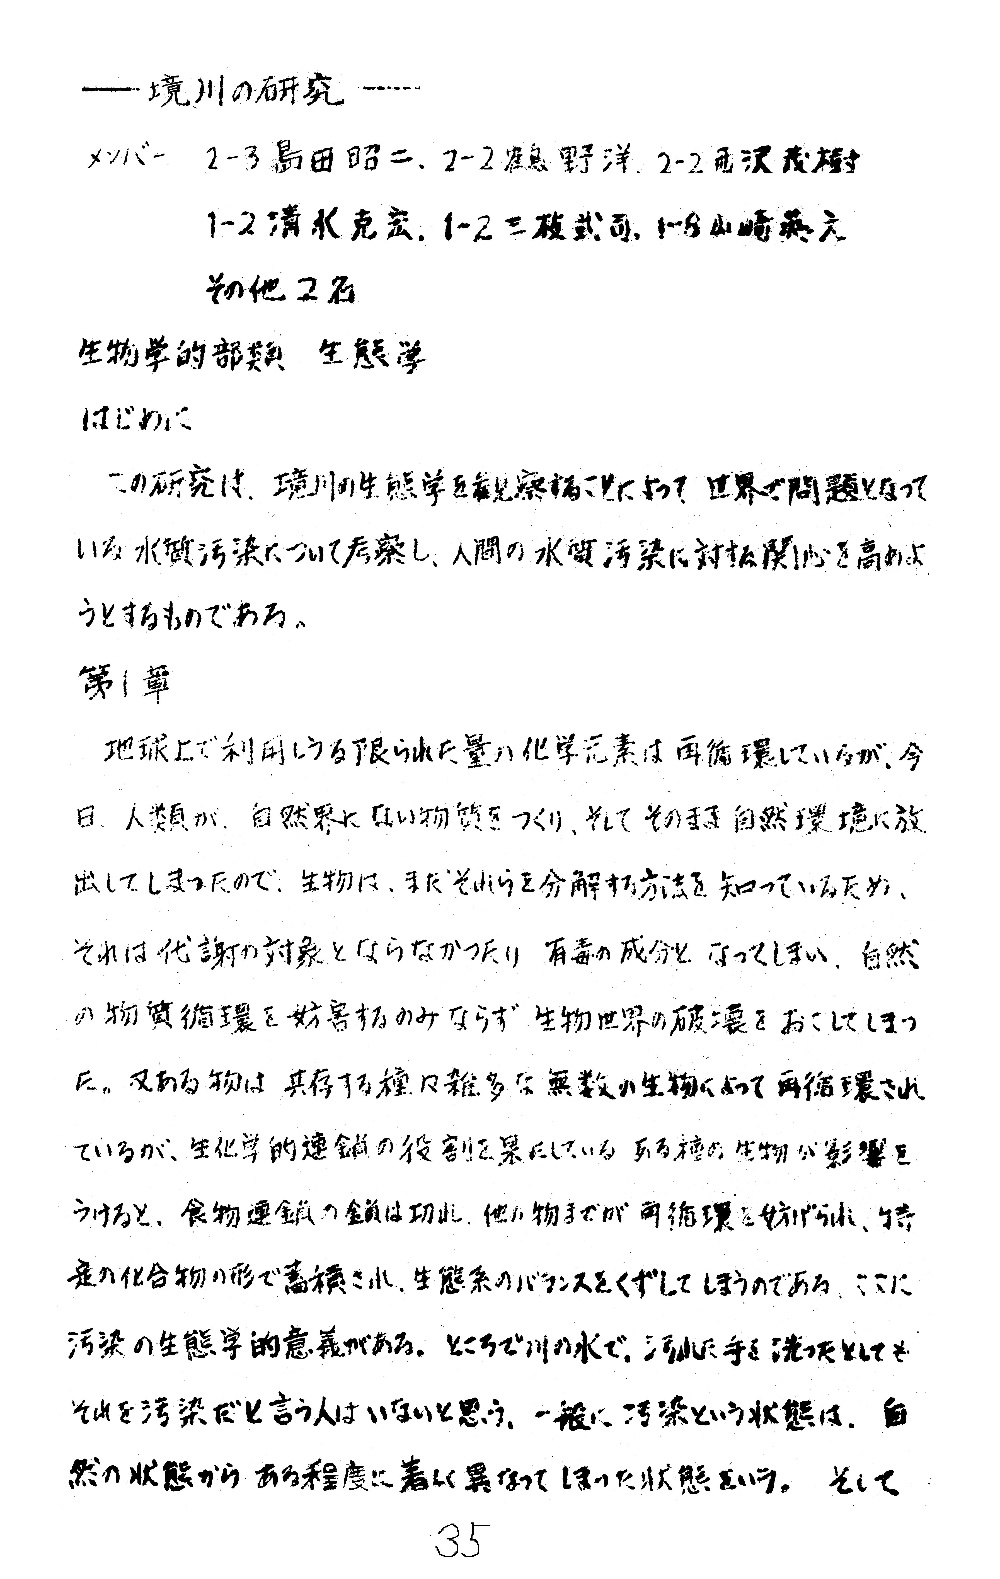 ── 境川の研究 ……
メンバー 2-3 島田昭二、2-2 鶴野洋、2-2 西沢茂樹
1-2 清水克宏、1-2 三枝武司、1-8 山崎英文
その他2名
生物学的部類 生態学
はじめに
この研究は、境川の生態学を観察することによって世界で問題となって
いる水質汚染について考察し、人間の水質汚染に対する関心を高めよ
うとするものである。
第1章
地球上で利用しうる限られた量の化学元素は再循環しているが、今
日、人類が、自然界にない物質をつくり、そしてそのまま自然環境に放
出してしまったので、生物は、まだそれらを分解する方法を知っているため、
それは代謝の対象とならなかったり 有毒の成分となってしまい、自然
の物質循環を妨害するのみならず生物世界の破壊をおこしてしまっ
た。又ある物は共存する種々雑多な無数の生物によって再循環され
ているが、生化学的連鎖の役割を果たしているある種の生物が影響を
うけると、食物連鎖の鎖は切れ、他の物までが再循環を妨げられ、特
定の化合物の形で蓄積され、生態系のバランスをくずしてしまうのである、ここに
汚染の生態学的意義がある。ところで川の水で、汚れた手を洗ったとしても
それを汚染だと言う人はいないと思う。一般に汚染という状態は、自
然の状態からある程度に著しく異なってしまった状態をいう。 そして
35